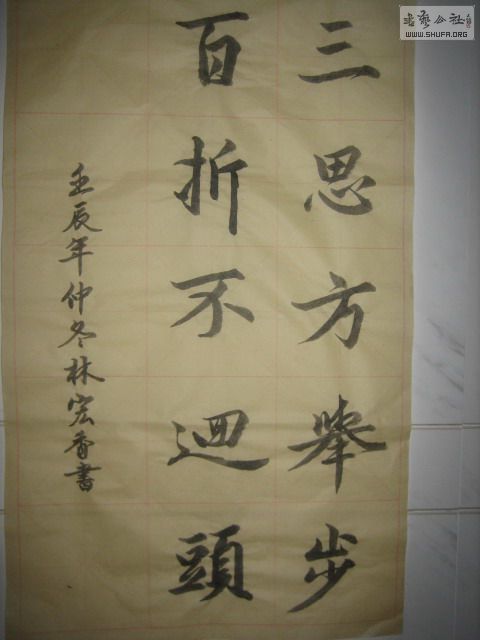 三思方舉步
百折不迴頭
壬辰年仲冬林宏香書
書藝公社
WWW.SHUFA.ORG